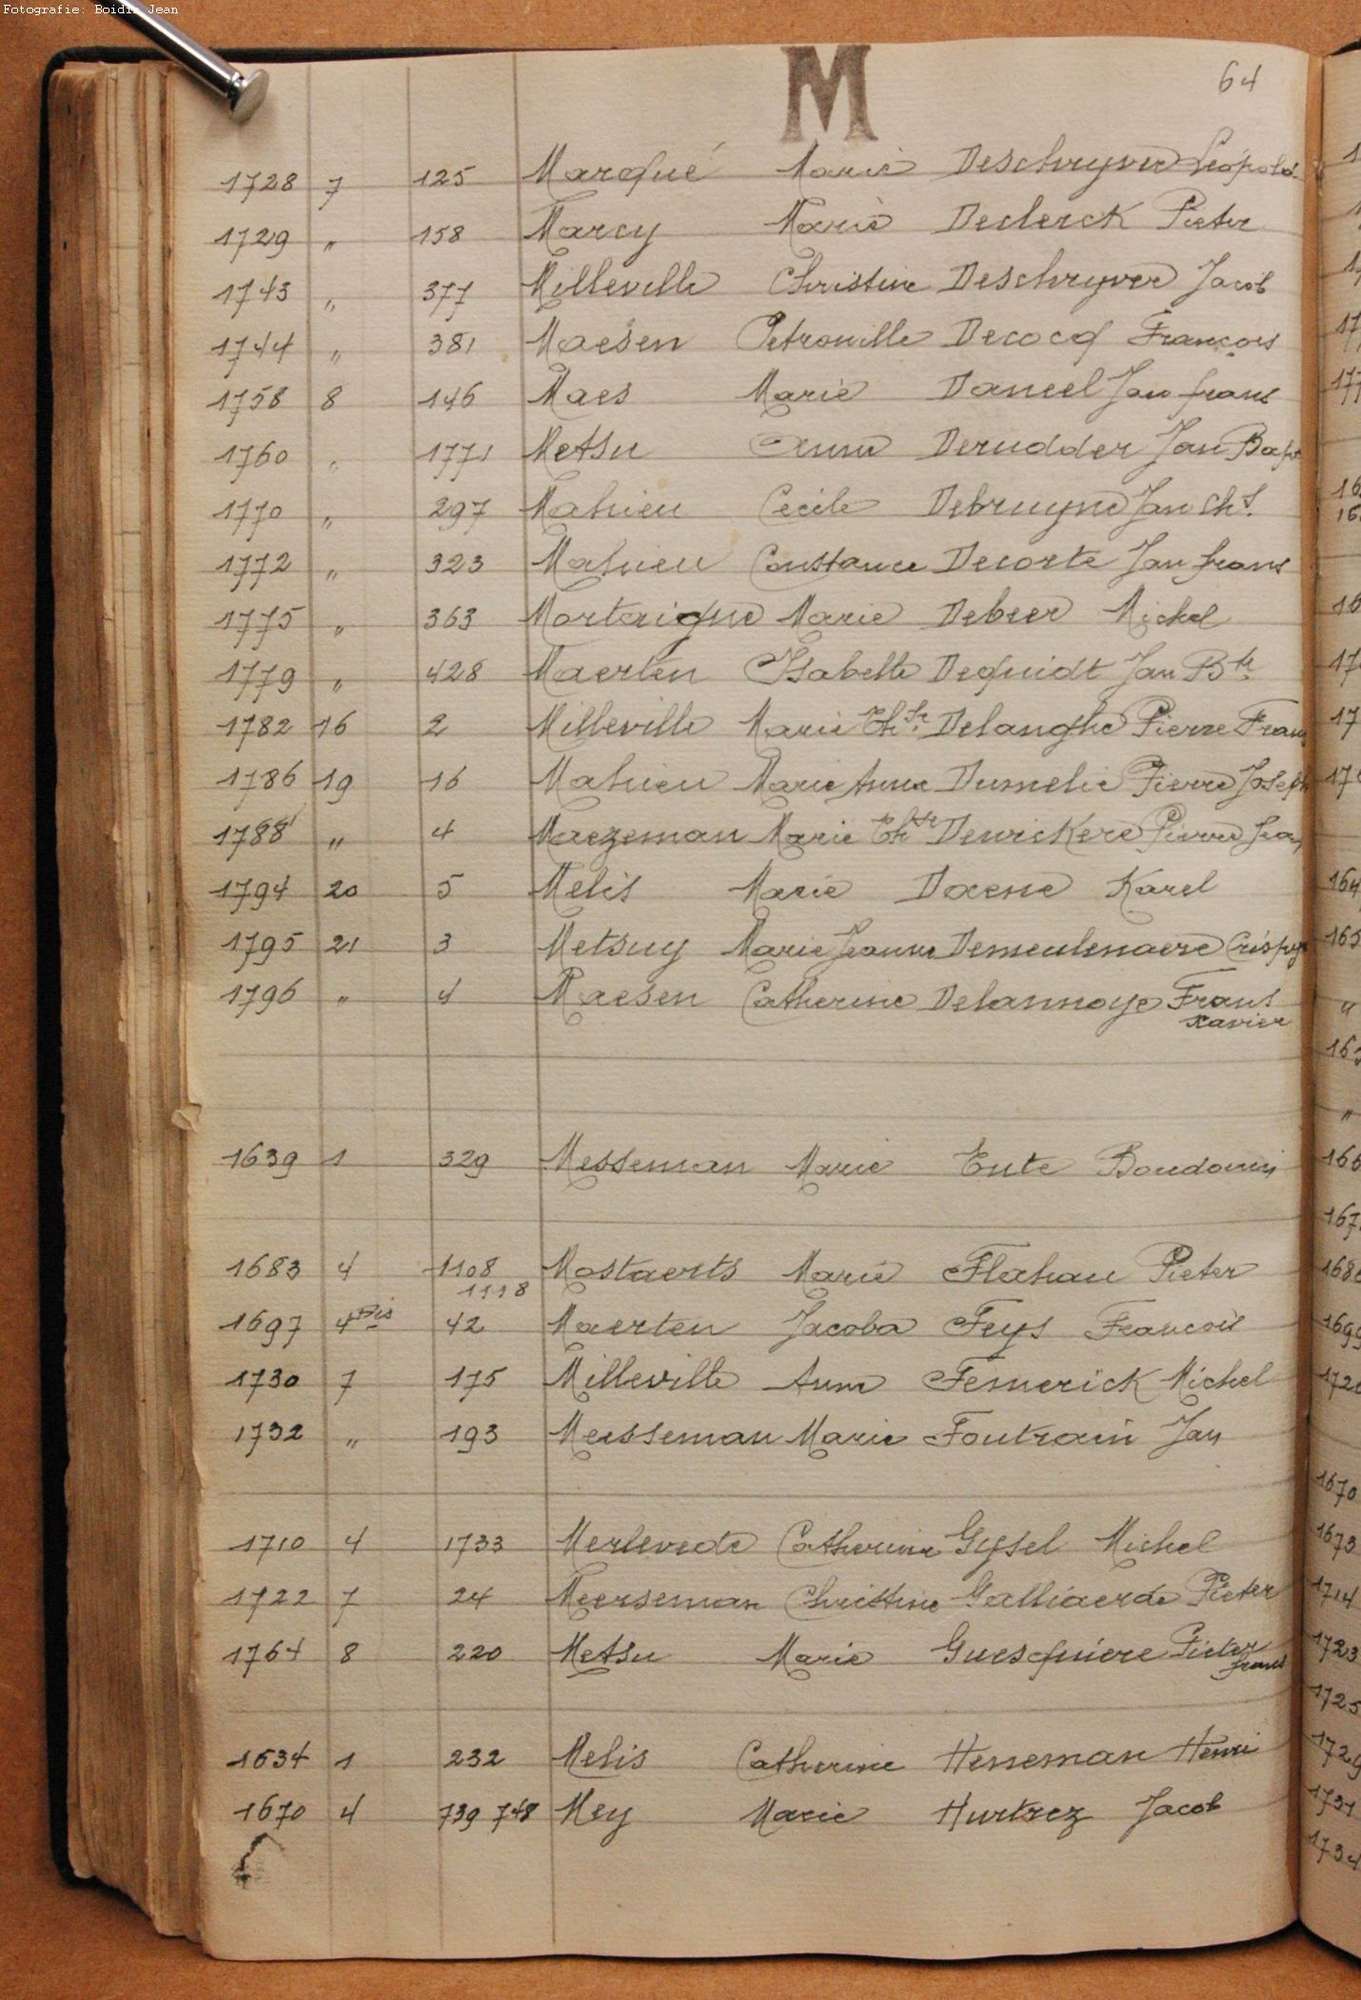 Fotografie: Boidin Jean
M
64
1728 7 125 Marqué Marie Deschryver Léopold
1729 " 158 Marcy Marie Declerck Pieter
1743 " 377 Milleville Christine Deschryver Jacob
1744 " 381 Maesen Petronille Decocq François
1758 8 146 Maes Marie Daneel Jan frans
1760 " 1771 Metsu Anna Derudder Jan Bapt
1770 " 297 Mahieu Cecile Debruyne Jan Chs.
1772 " 323 Mahieu Constance Decorte Jan frans
1775 " 363 Mortaigne Marie Debeer Michel
1779 " 428 Maerten Isabelle Dequidt Jan Bte
1782 16 2 Milleville Marie Thse Delanghe Pierre Frans
1786 19 16 Mahieu Marie Anna Dumelie Pierre Joseph
1788 " 4 Maezeman Marie Thse Dewickere Pierre Jean
1794 20 5 Melis Marie Daene Karel
1795 21 3 Metsuy Marie Jeanne Demeulenaere
1796 " 4 Maesen Catherine Delannoye Frans
Xavier
1639 1 329 Messeman Marie Ente Boudouin
1683 4 1108 Mostaerts Marie Flahau Pieter
1118
1697 4Bis 42 Maerten Jacoba Feys François
1730 7 175 Milleville Anna Femerick Michel
1732 " 193 Meisseman Marie Foutrain Jan
1710 4 1733 Merlevede Catherine Gysel Michel
1722 7 24 Meerseman Christine Galliaerde Pieter
1764 8 220 Metsu Marie Guesquiere Pieter
frans
1634 1 232 Melis Catherine Henneman Henri
1670 4 739 748 Mey Marie Hurtrez Jacob